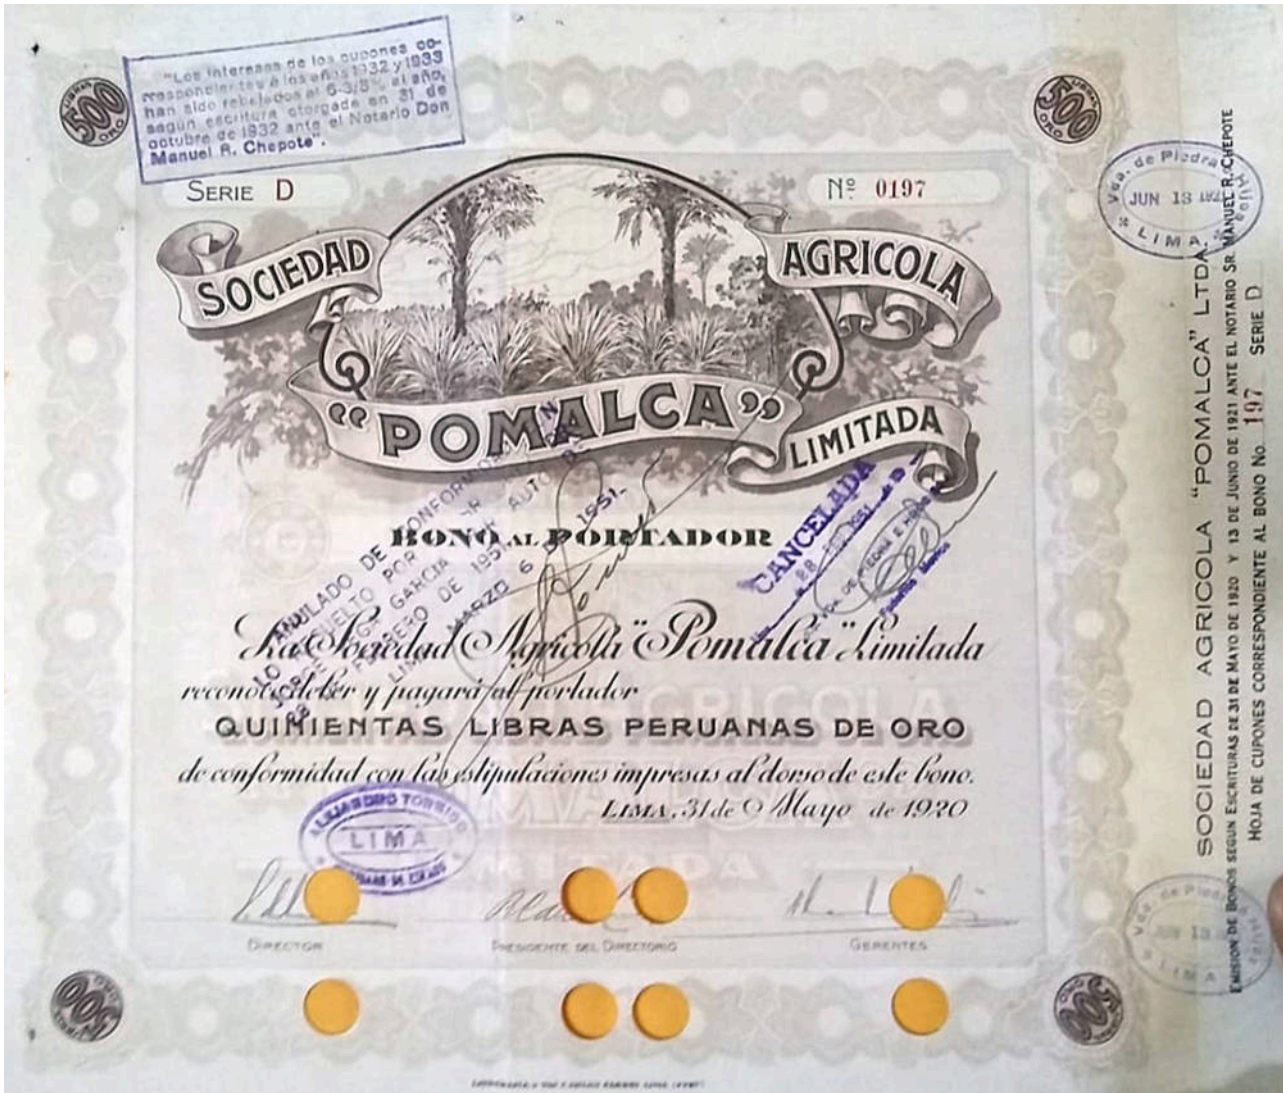 "Los intereses de los cupones co-
rrespondientes á los años 1932 y 1933
han sido rebajados al 6-3/8% al año,
según escritura otorgada en 31 de
octubre de 1932 ante el Notario Don
Manuel R. Chepote".
500
LIBRAS
ORO
500
LIBRAS
ORO
SERIE D
Nº 0197
SOCIEDAD
AGRICOLA
"POMALCA"
LIMITADA
BONO AL PORTADOR
ANULADO DE CONFORMIDAD CON
LO RESUELTO POR AUTO
JORGE GARCIA
FEBRERO DE 1951
LIMA MARZO 6 DE 1951.
CANCELADA
La Sociedad Agricola "Pomalca" Limitada
reconoce deber y pagará al portador
QUINIENTAS LIBRAS PERUANAS DE ORO
de conformidad con las estipulaciones impresas al dorso de este bono.
LIMA, 31 de Mayo de 1920
ALEJANDRO TORRICO
LIMA
DIRECTOR
PRESIDENTE DEL DIRECTORIO
GERENTES
500
LIBRAS
ORO
500
ORO
Vda. de Piedra
JUN 13
LIMA
SOCIEDAD AGRICOLA "POMALCA" LTDA.
EMISION DE BONOS SEGUN ESCRITURAS DE 31 DE MAYO DE 1920 Y 13 DE JUNIO DE 1921 ANTE EL NOTARIO SR. MANUEL R. CHEPOTE
HOJA DE CUPONES CORRESPONDIENTE AL BONO No. 197 SERIE D
Vda. de Piedra
LIMA